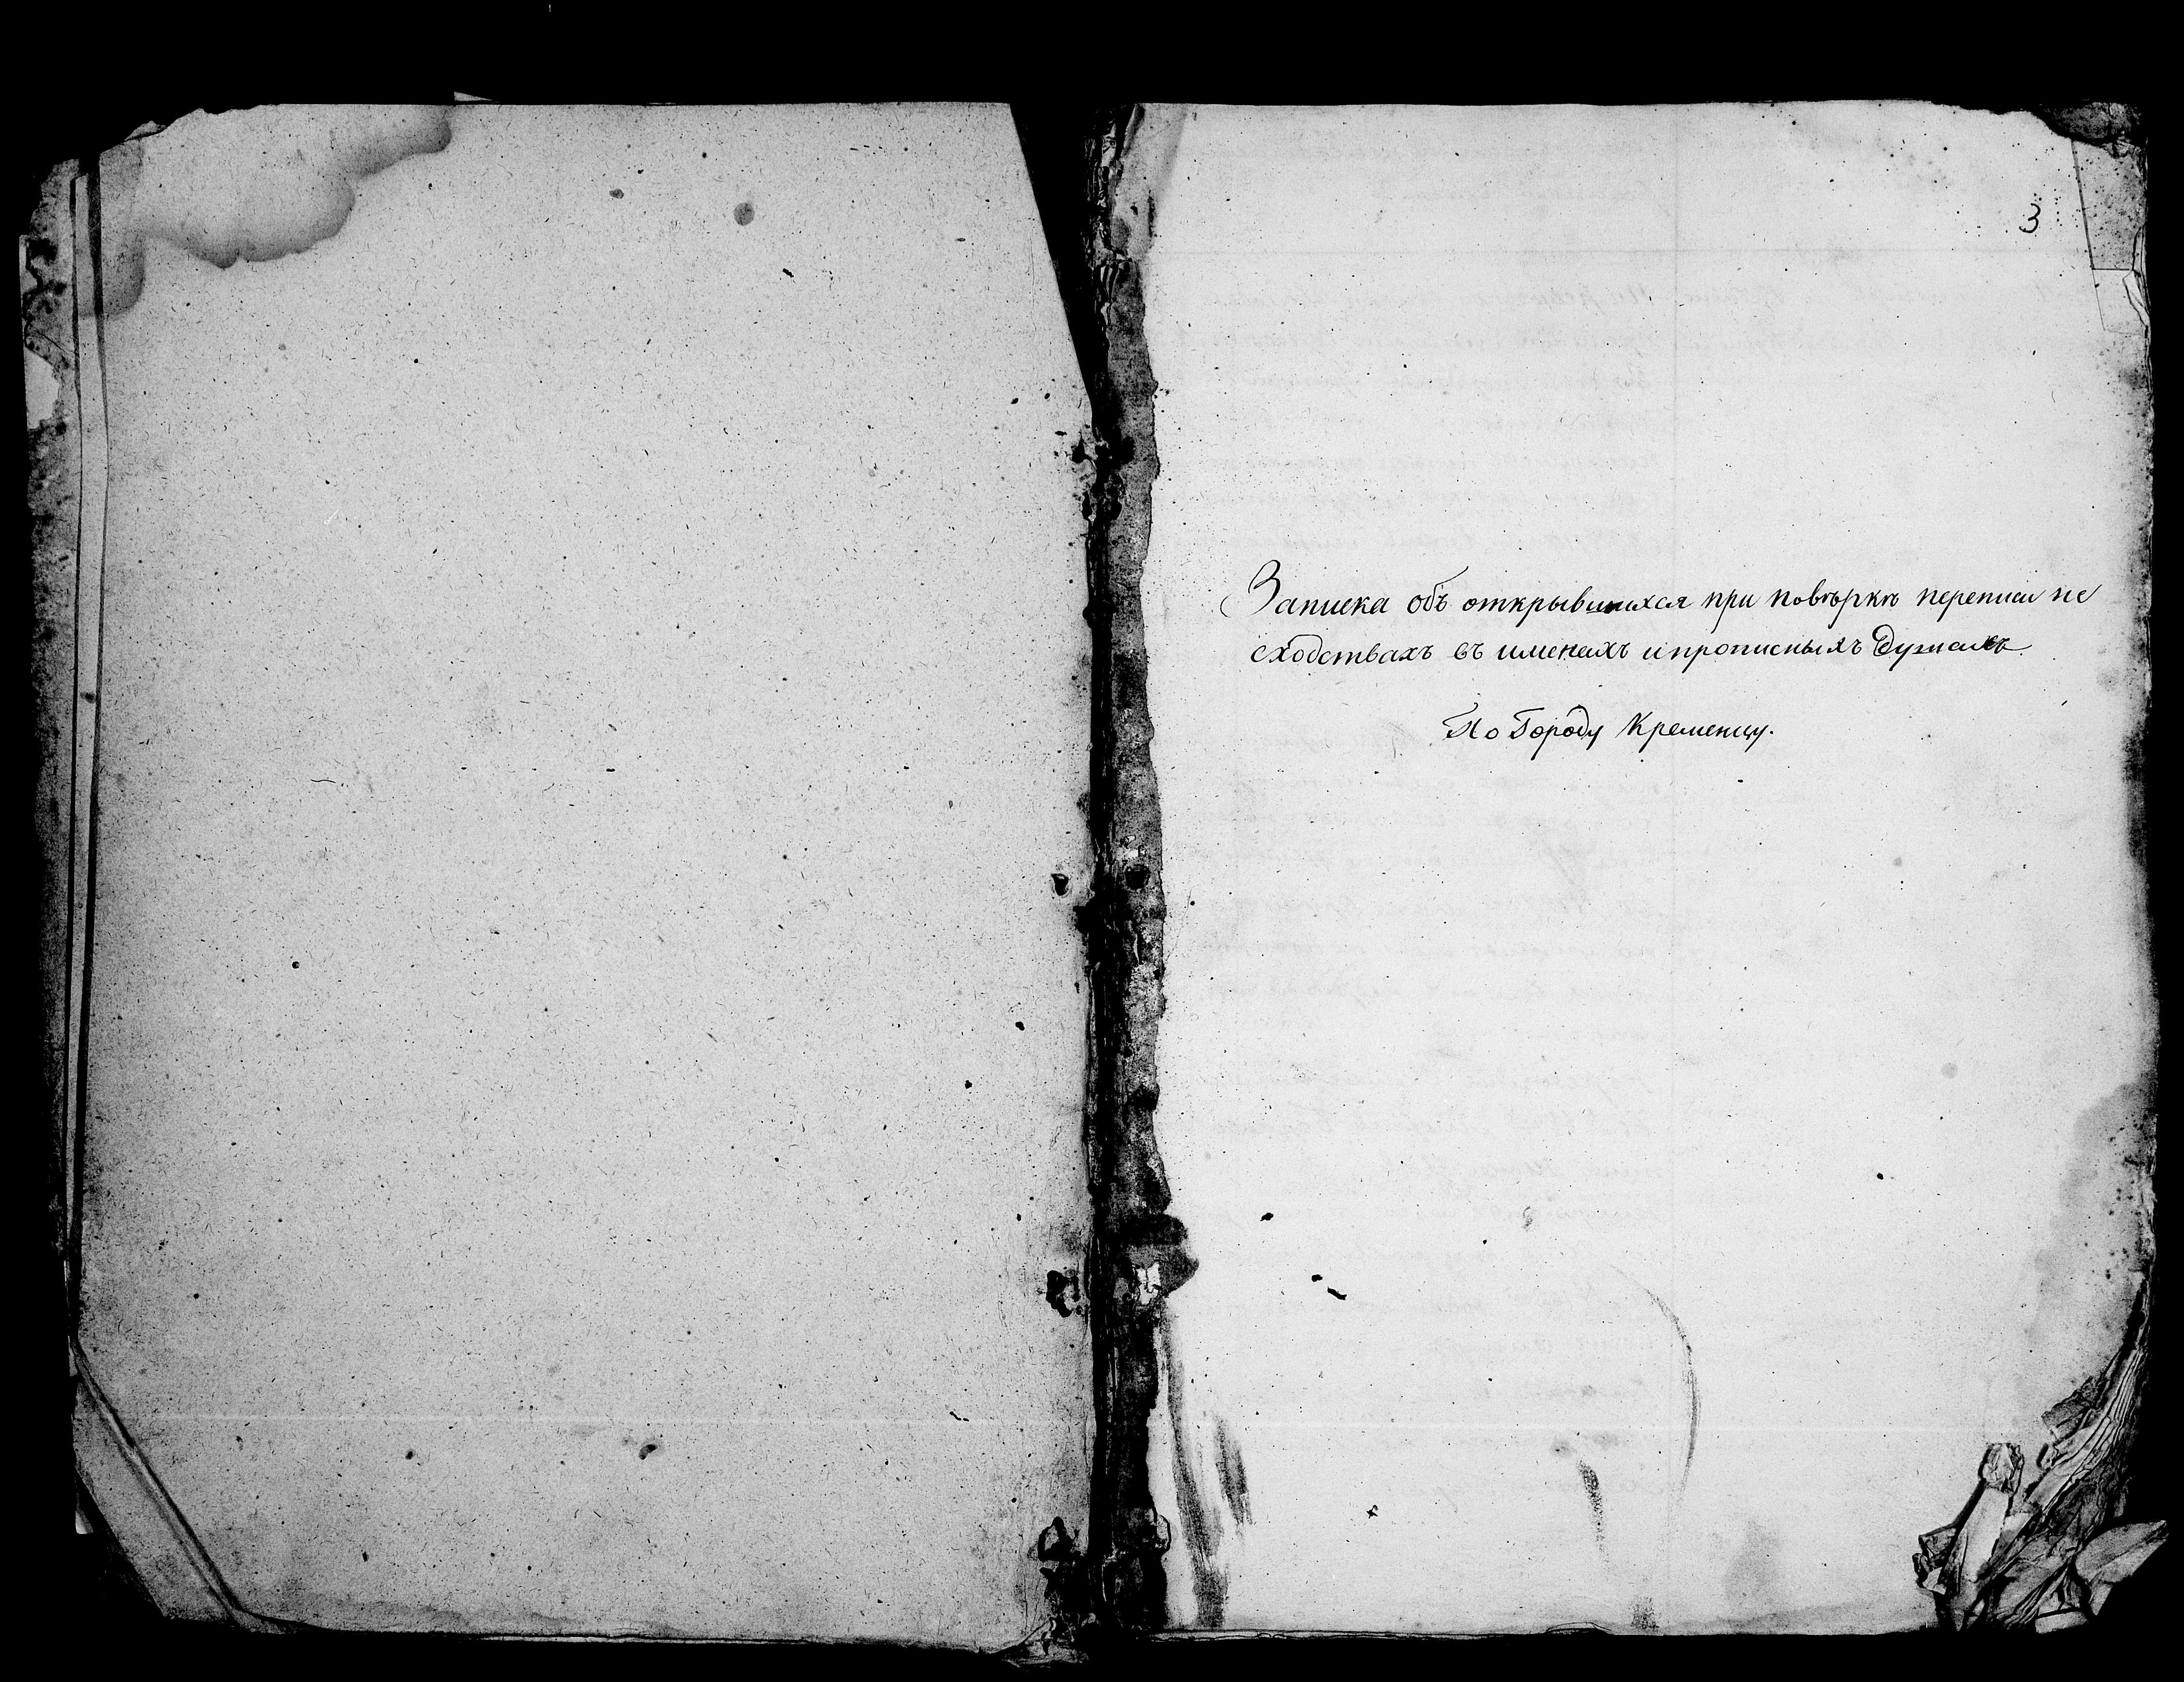 3
Записка объ открывшихся при повѣркѣ переписи не
сходствахъ въ именахъ и прописныхъ душахъ
По Городу Кременцу.